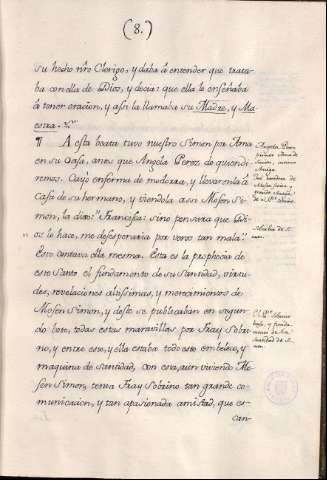 (8.)
su hecho nr̃o Clerigo, y daba à entender que trata-
ba con ella de Dios, y decia: que ella la enseñaba
à tener oracion, y assi la llamaba su Madre, y Ma-
estra.
¶ A esta beata tuvo nuestro Simon por Ama
en su Casa, antes que Angela Perez de quien di-
remos. Cayò enferma de modorra, y llevaronla à
Casa de su hermano, y viendola assi Mosen Si-
mon, la dixo: "Francisca: sino pensara que Di-
os le hace, me desesperaria por veros tan mala."
Esto contava ella mesma. Esta es la prophecia de
este Santo el fundamento de su Santidad, virtu-
des, revelaciones altissimas, y merecimientos de
Mosen Simon, y desto se publicaban en segun-
do bote, todas estas maravillas por Fray Sobri-
no, y entre este, y ella estaba todo este embeleco, y
maquina de santidad, con esta, aun viviendo Mo-
sen Simon, tenia Fray Sobrino tan grande co-
municacion, y tan apasionada amistad, que es-
can-
Angela Perez
primera Ama de
Simon,
de Mosen
y
de el P.e Sobrino.
de Si-
mon.
El P.e Sobri-
no, y
de la
santidad de Si-
mon.